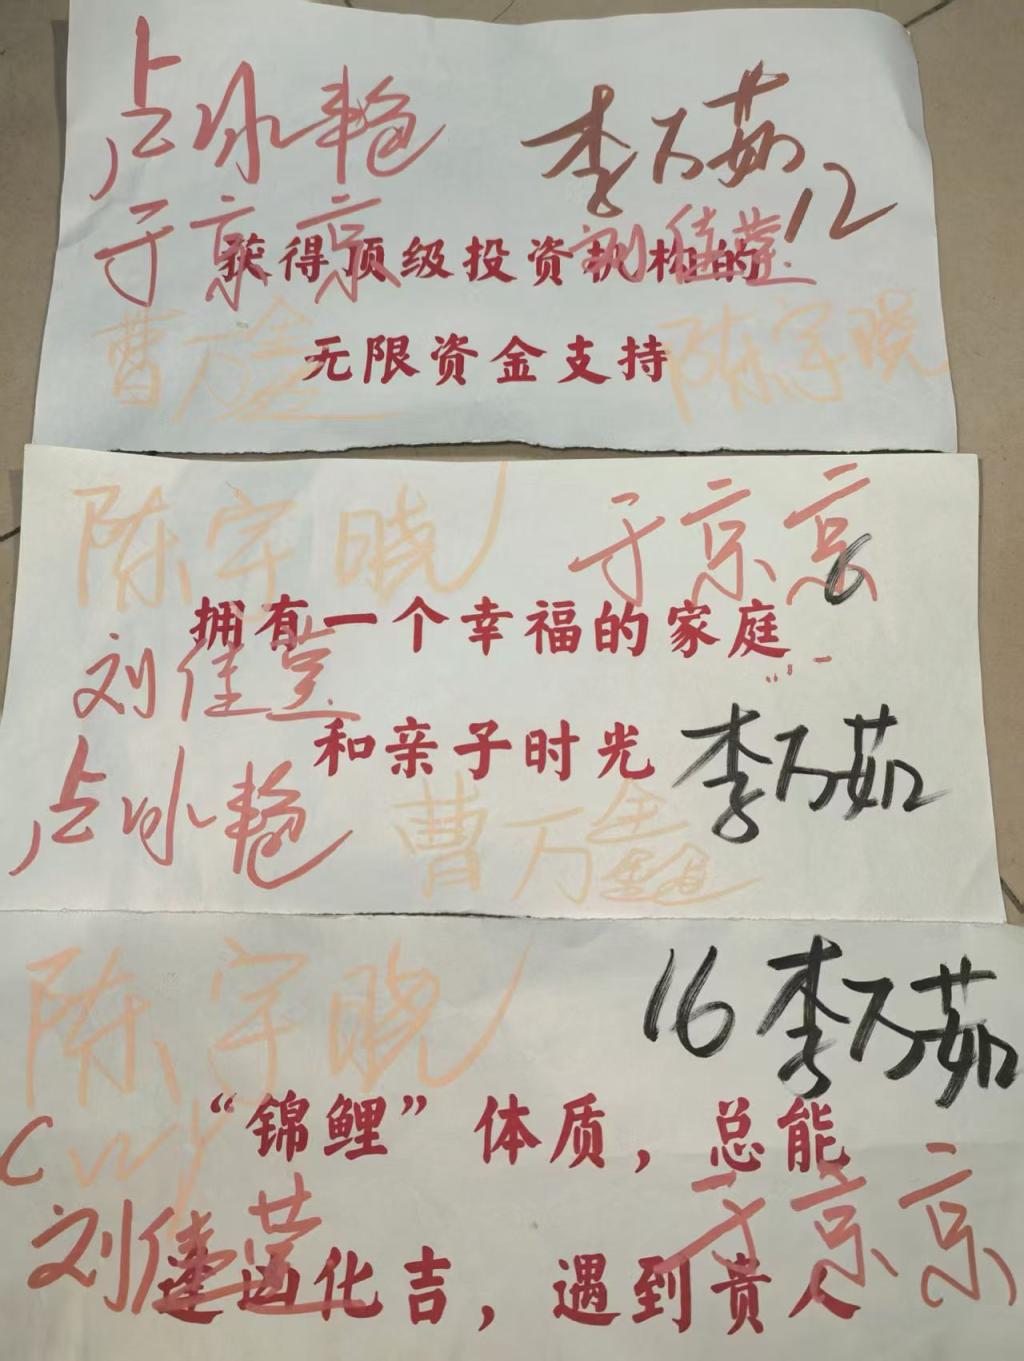 占冰艳 李万茹
12
于京京 刘佳萱
获得顶级投资机构的
曹万鑫 陈宇晓
无限资金支持
陈宇晓 于京京
6
拥有一个幸福的家庭
刘佳萱
和亲子时光 李万茹
占冰艳 曹万鑫
陈宇晓 16 李万茹
“锦鲤”体质，总能
刘佳萱 于京京
逢凶化吉，遇到贵人